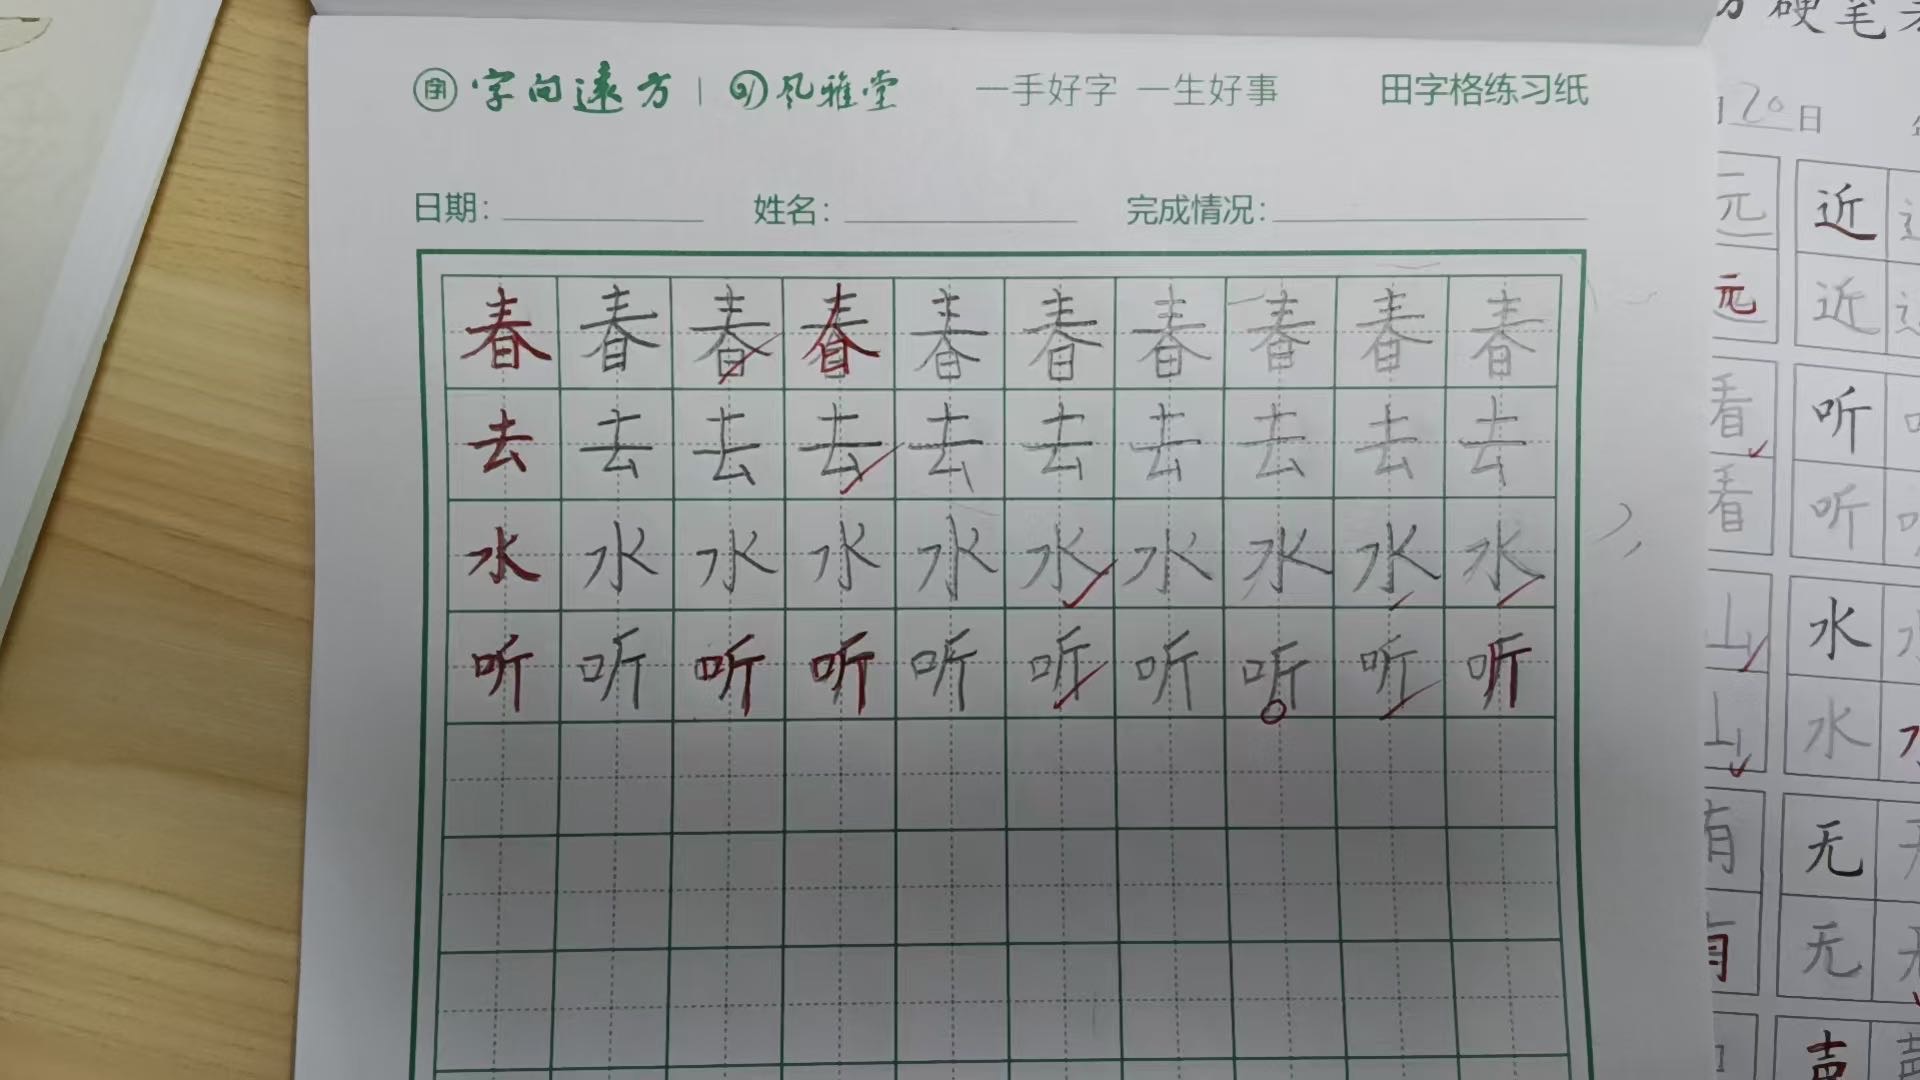 字 字向远方 | 风雅堂 一手好字 一生好事 田字格练习纸
日期: 姓名: 完成情况:
春 春 春 春 春 春 春 春 春 春
去 去 去 去 去 去 去 去 去 去
水 水 水 水 水 水 水 水 水 水
听 听 听 听 听 听 听 听 听 听
硬笔
20日
元 近
元 近
看 听
看 听
山 水
山 水
有 无
有 无
声